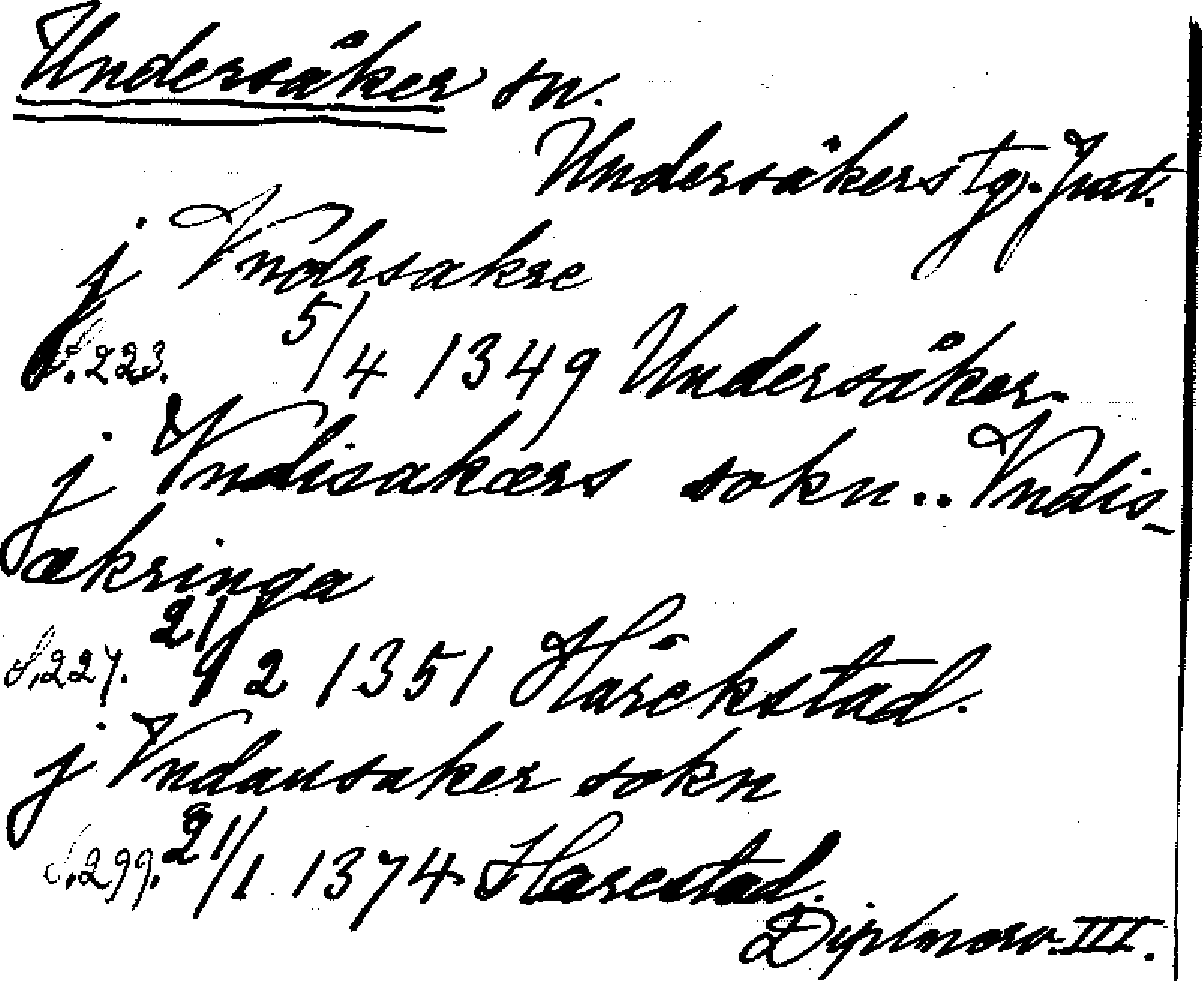 Undersåker sn.
Undersåkers tg. Jmt.
j Vndrsakre
S. 223. 5/4 1349 Undersåker.
j Vndisakærs sokn .. Vndis-
ækringa
S. 227. 21/2 1351 Hårekstad.
j Vndansaker sokn
S. 299. 21/1 1374 Harestad.
Dipl norv. III.